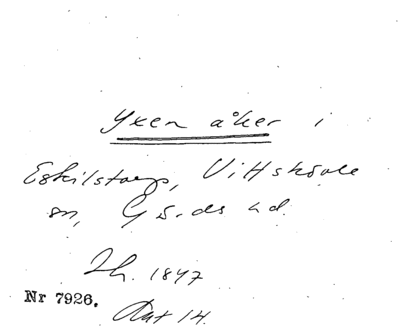 Yxen åker i
Eskilstorp, Vittskövle
sn, Gärds hd.
Th. 1847
Nr 7926.
Akt 14.